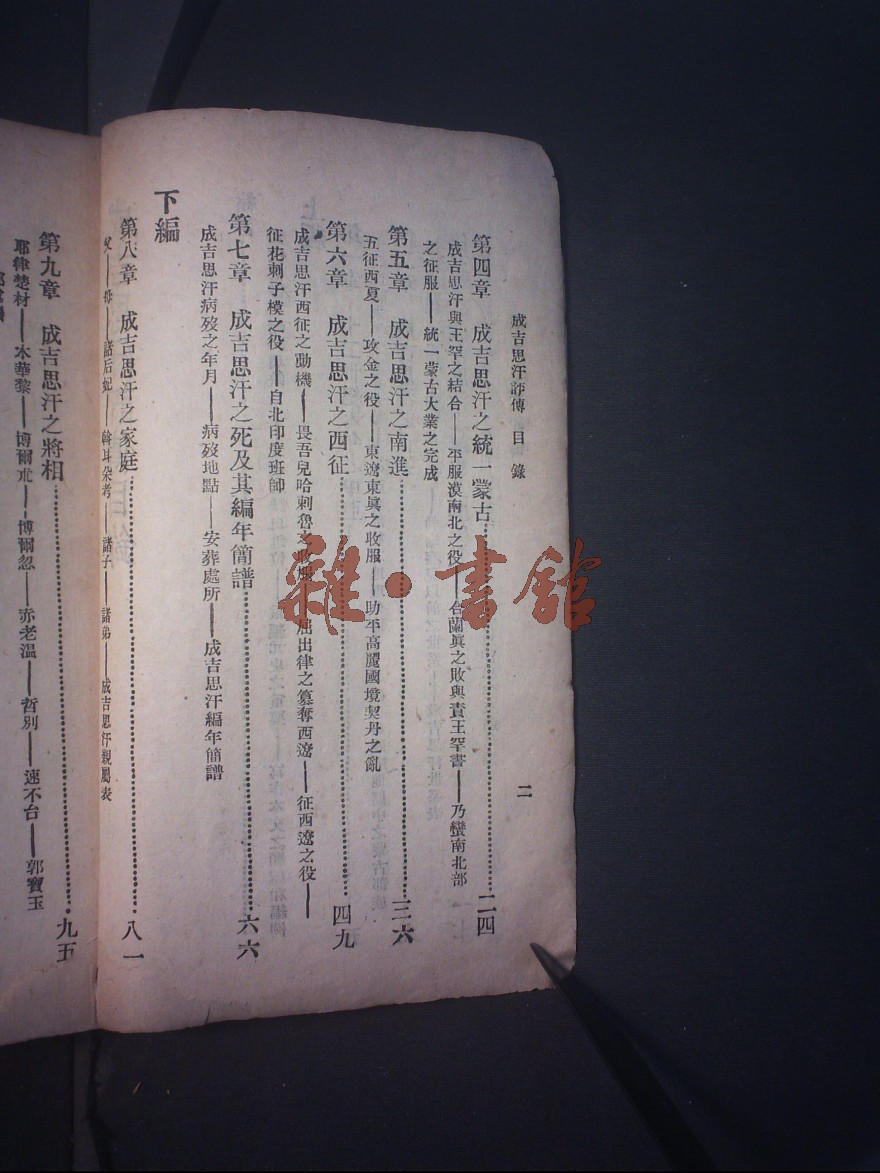 成吉思汗評傳 目錄
二
第四章 成吉思汗之統一蒙古⋯⋯⋯⋯二四
成吉思汗與王罕之結合——平服漠南北之役——合蘭真之敗與責王罕書——乃蠻南北部
之征服——統一蒙古大業之完成
第五章 成吉思汗之南進⋯⋯⋯⋯三六
五征西夏——攻金之役——東遼東真之收服——助平高麗國境契丹之亂
第六章 成吉思汗之西征⋯⋯⋯⋯四九
成吉思汗西征之動機——畏吾兒哈剌魯之 服——屈出律之篡奪西遼——征西遼之役——
征花剌子模之役——自北印度班師
第七章 成吉思汗之死及其編年簡譜⋯⋯⋯⋯六六
成吉思汗病歿之年月——病歿地點——安葬處所——成吉思汗編年簡譜
下編
第八章 成吉思汗之家庭⋯⋯⋯⋯八一
父——母——諸后妃——斡耳朵考——諸子——諸弟——成吉思汗親屬表
第九章 成吉思汗之將相⋯⋯⋯⋯九五
耶律楚材——木華黎——博爾朮——博爾忽——赤老溫——哲別——速不台——郭寶玉
雜·書館